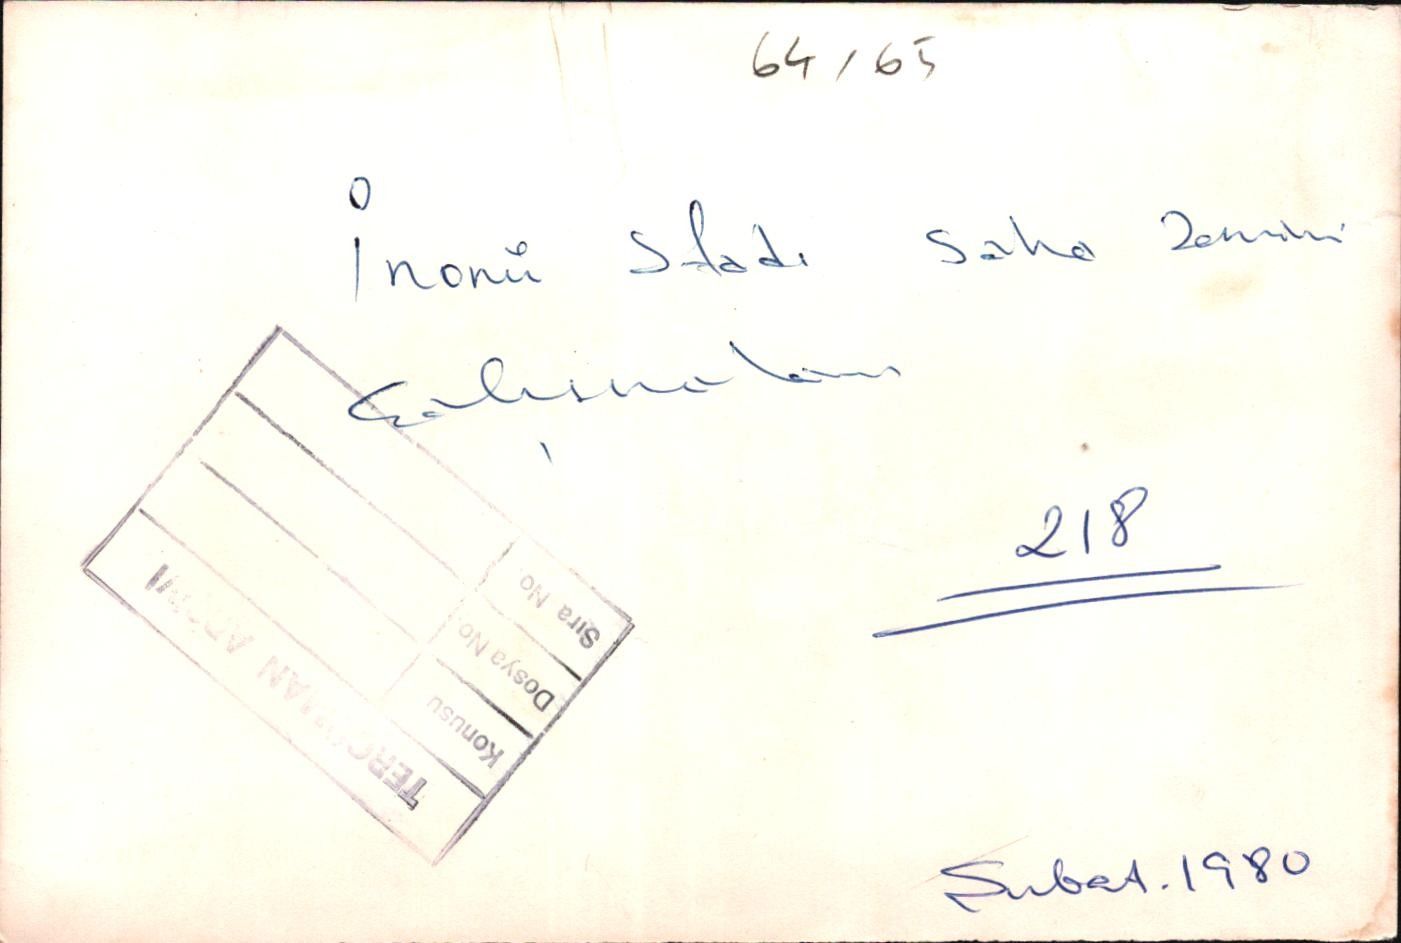 64/65
İnönü Stadı Saha Zemini
Çalışmaları
218
TERCÜMAN ARŞİVİ
Konusu
Dosya No
Sıra No
Şubat.1980